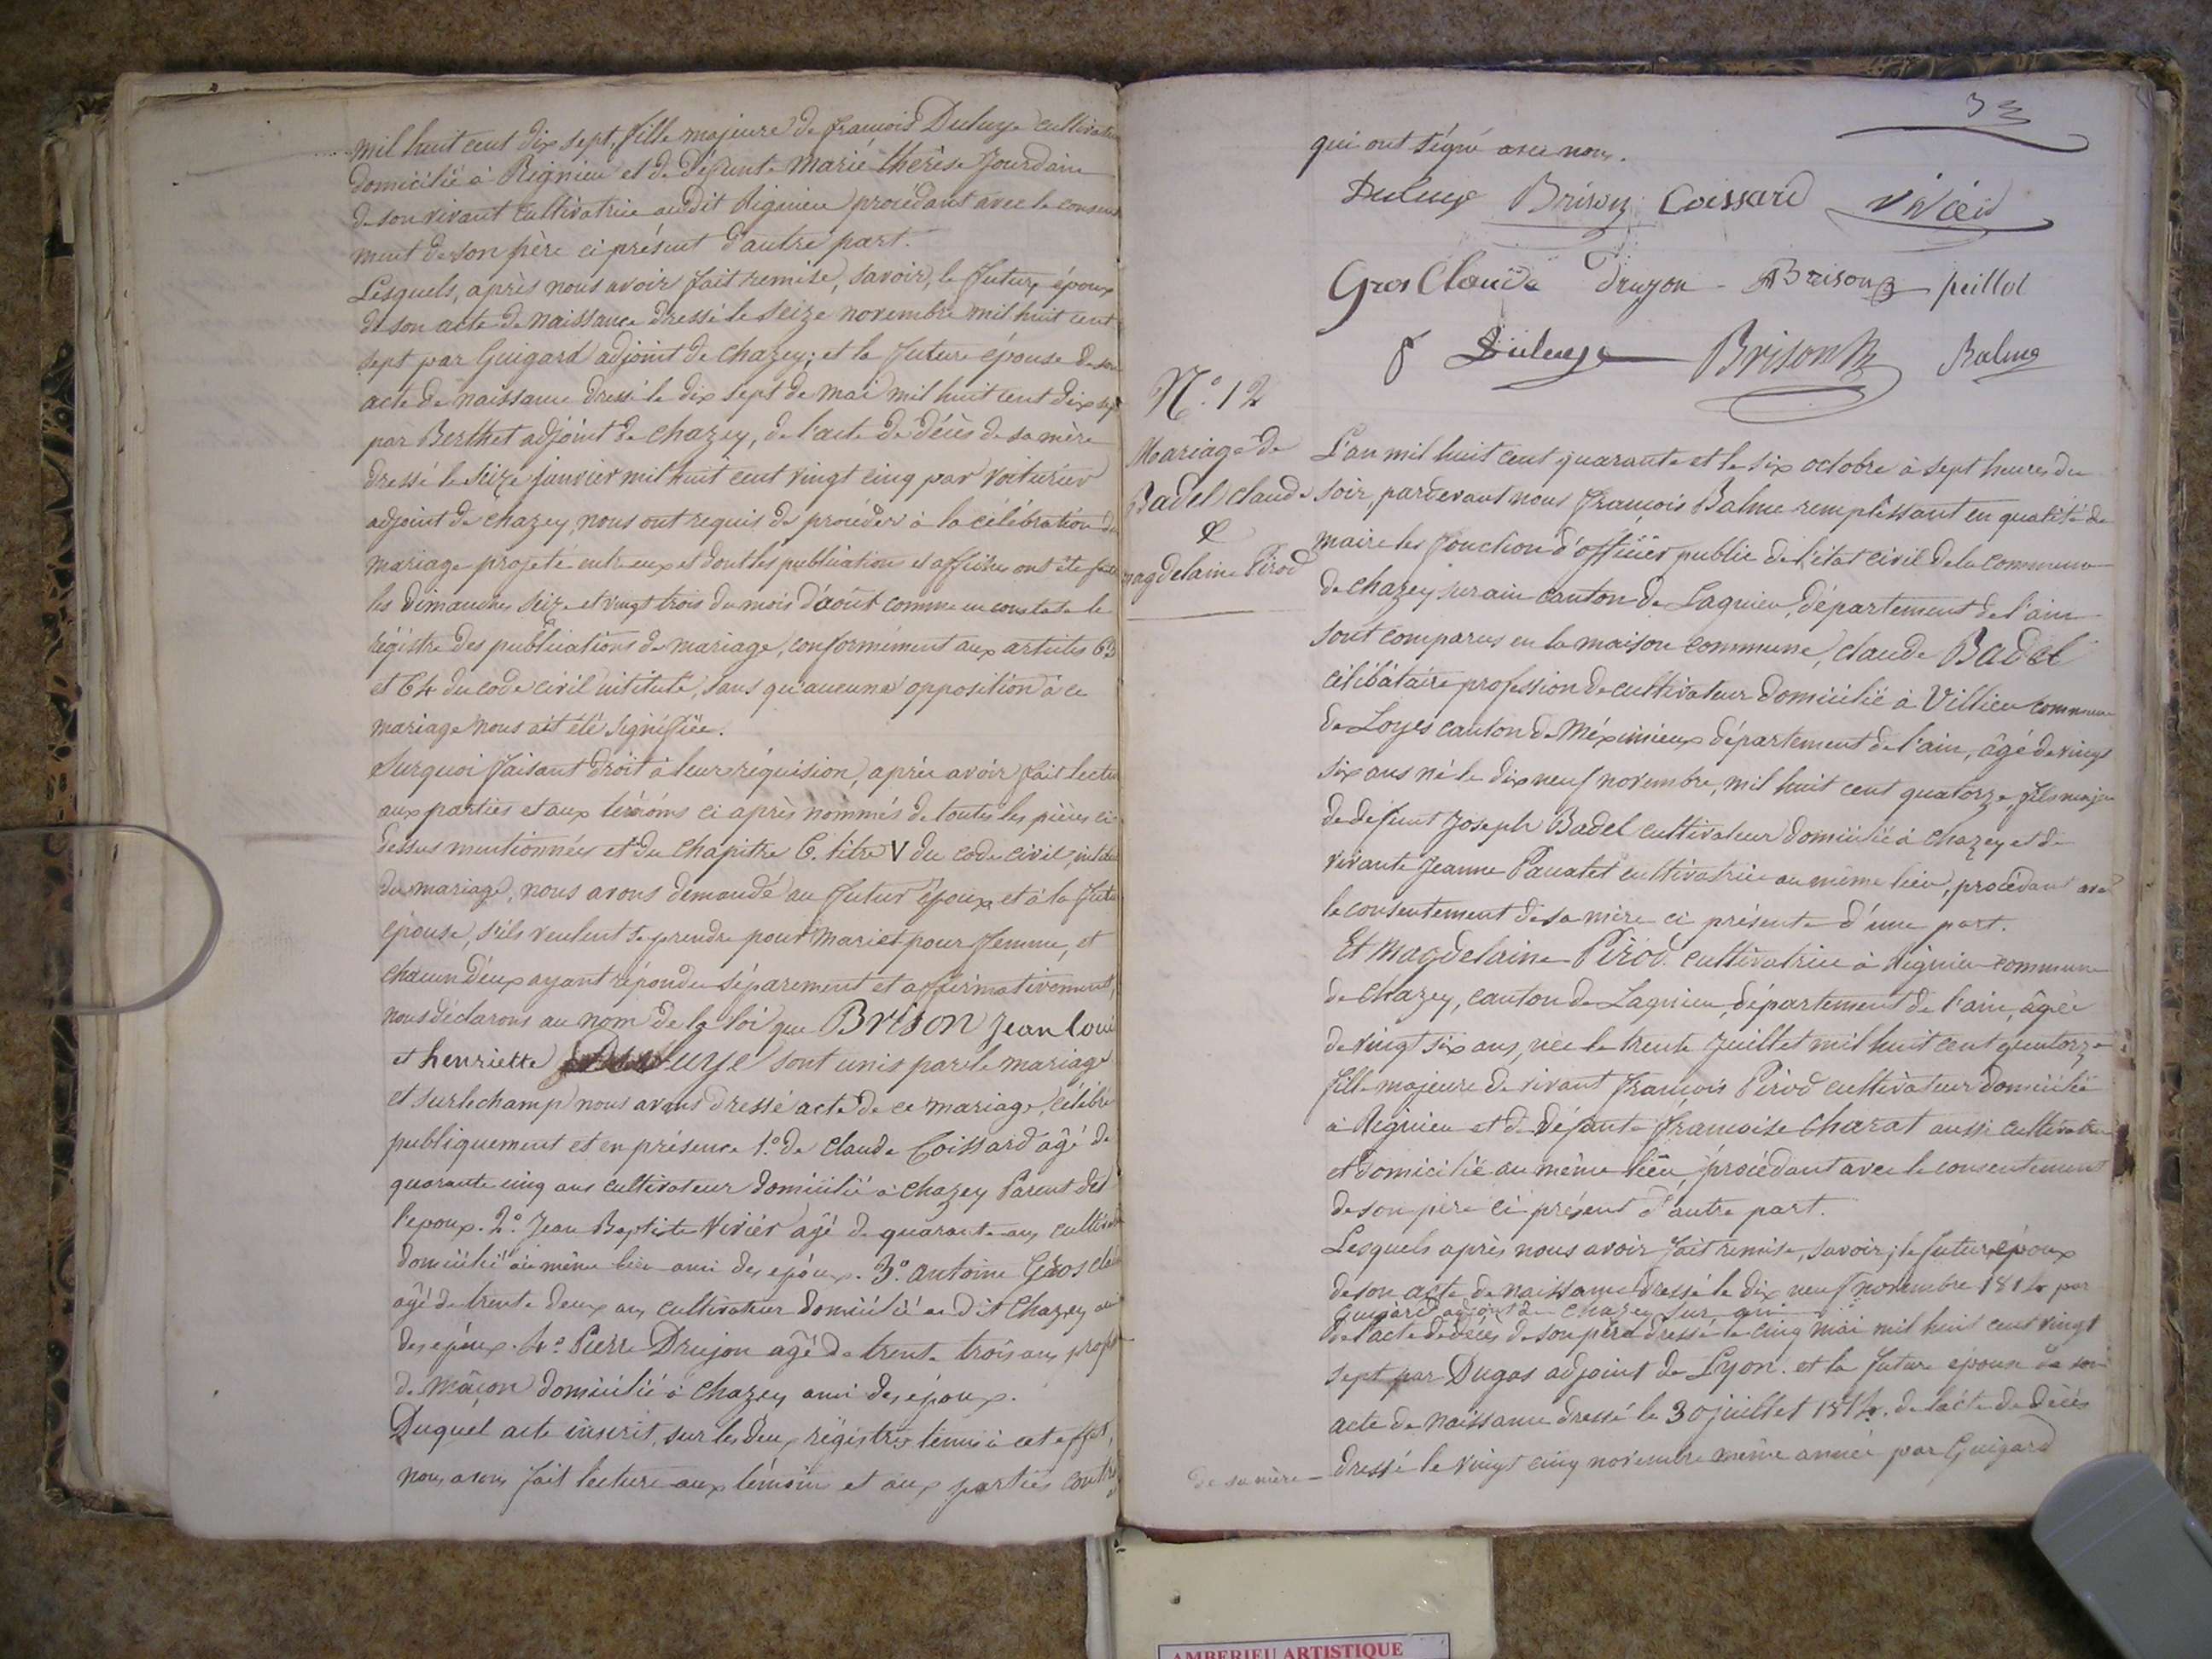 mil huit cent dix sept, fille majeure de françois Duluye cultivateur
domicilié à Rignieu et de défunte Marie thérèse Jourdain
de son vivant Cultivatrice audit Rignieu procédant avec le consente
ment de son père ci présent d'autre part.
Lesquels, après nous avoir fait remise, savoir, le futur époux
de son acte de naissance dressé le seize novembre mil huit cent
sept par Guigard adjoint de chazey; et la future épouse de son
acte de naissance dressé le dix sept de mai mil huit cent dix sept
par Berthet adjoint de chazey, de l'acte de décès de sa mère
dressé le seize janvier mil huit cent vingt cinq par Voiturier
adjoint de chazey, nous ont requis de procéder à la célébration du
mariage projeté entre eux et dont les publication et affiches ont été faites
les dimanches seize et vingt trois du mois d'août comme en constate le
régistre des publications de mariage, conformément aux articles 63
et 64 du code civil intitulé, sans qu'aucune opposition à ce
mariage nous ait été signifiée.
Surquoi faisant droit à leur réquision, après avoir fait lecture
aux parties et aux témoins ci après nommés de toutes les pièces ci
dessus mentionnées et du chapitre 6. titre V du code civil, intitulé
du mariage, nous avons demandé au futur époux et à la future
épouse, s'ils veulent se prendre pour mari et pour femme, et
chacun d'eux ayant répondu séparement et affirmativement,
nous déclarons au nom de la loi que Brison Jean louis
et henriette Duluye sont unis par le mariage
et sur le champ nous avons dressé acte de ce mariage, célébré
publiquement et en présence 1.° de claude Coissard âgé de
quarante cinq ans cultivateur domicilié à chazey Parent de
l'époux. 2.° Jean Baptiste Vivier âgé de quarante ans cultivateur
domicilié au même lieu ami des époux. 3.° antoine Gros claude
âgé de trente deux ans cultivateur domicilié au dit chazey ami
des époux. 4.° Pierre Drujon âgé de trente trois ans profession
de Mâçon domicilié à Chazey ami des époux.
Duquel acte inscrit, sur les deux régistres tenus à cet effet,
nous avons fait lecture aux témoins et aux parties
33
qui ont signé avec nous.
Duluye Brison Coissard vivier
Gros Claude Drujon A Brison peillot
f Duluye Brison Balme
N.° 12
Mariage de
Badel claude
&
magdelaine Pirod
L'an mil huit cent quarante et le six octobre à sept heures du
soir, pardevant nous françois Balme remplissant en qualité de
maire les fonction d'officier public de l'état civil de la commune
de chazey sur ain canton de Lagnieu, département de l'ain
sont comparus en la maison commune, claude Badel
célibataire profession de cultivateur domicilié à Villieu commune
de Loyes canton de Méximieux département de l'ain, âgé de vingt
six ans né le dix neuf novembre, mil huit cent quatorze, fils majeur
de défunt Joseph Badel cultivateur domicilié à chazey et de
vivante Jeanne cultivatrice au même lieu, procédant avec
le consentement de sa mère ci présente d'une part.
Et Magdelaine Pirod cultivatrice à Rignieu commune
de chazey, canton de Lagnieu, département de l'ain, âgée
de vingt six ans, née le trente juillet mil huit cent quatorze
fille majeure de vivant françois Pirod cultivateur domicilié
à Rignieu et de défunte françoise charat aussi cultivatrice
et domicilié au même lieu, procédant avec le consentement
de son père ci présent d'autre part.
Lesquels après nous avoir fait remise, savoir; le futur époux
de son acte de naissance dressé le dix neuf novembre 1814 par
Guigard adjoint de chazey sur ain
de l'acte de décès de son père dressé le cinq mai mil huit cent vingt
sept par Dugas adjoint de Lyon. et la future épouse de son
acte de naissance dressé le 30 juillet 1814. de l'acte de décès
de sa mère - dressé le vingt cinq novembre même année par Guigard
AMBERIEU ARTISTIQUE